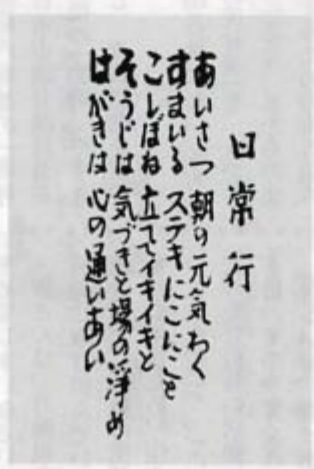 日常行
あいさつ 朝の元気わく
すまいる ステキにこにこと
こしぼね 立ててイキイキと
そうじは 気づきと場の浄め
はがきは 心の通いあい